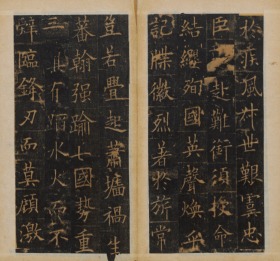 於疾風叔世艱虞忠
臣赴難銜須授命
結纓殉國英聲煥乎
記牒徽烈著於旂常
豈若釁起蕭墻禍生
蕃翰強踰七國勢重
三其有蹈水火而不
辭臨鋒刃而莫顧激